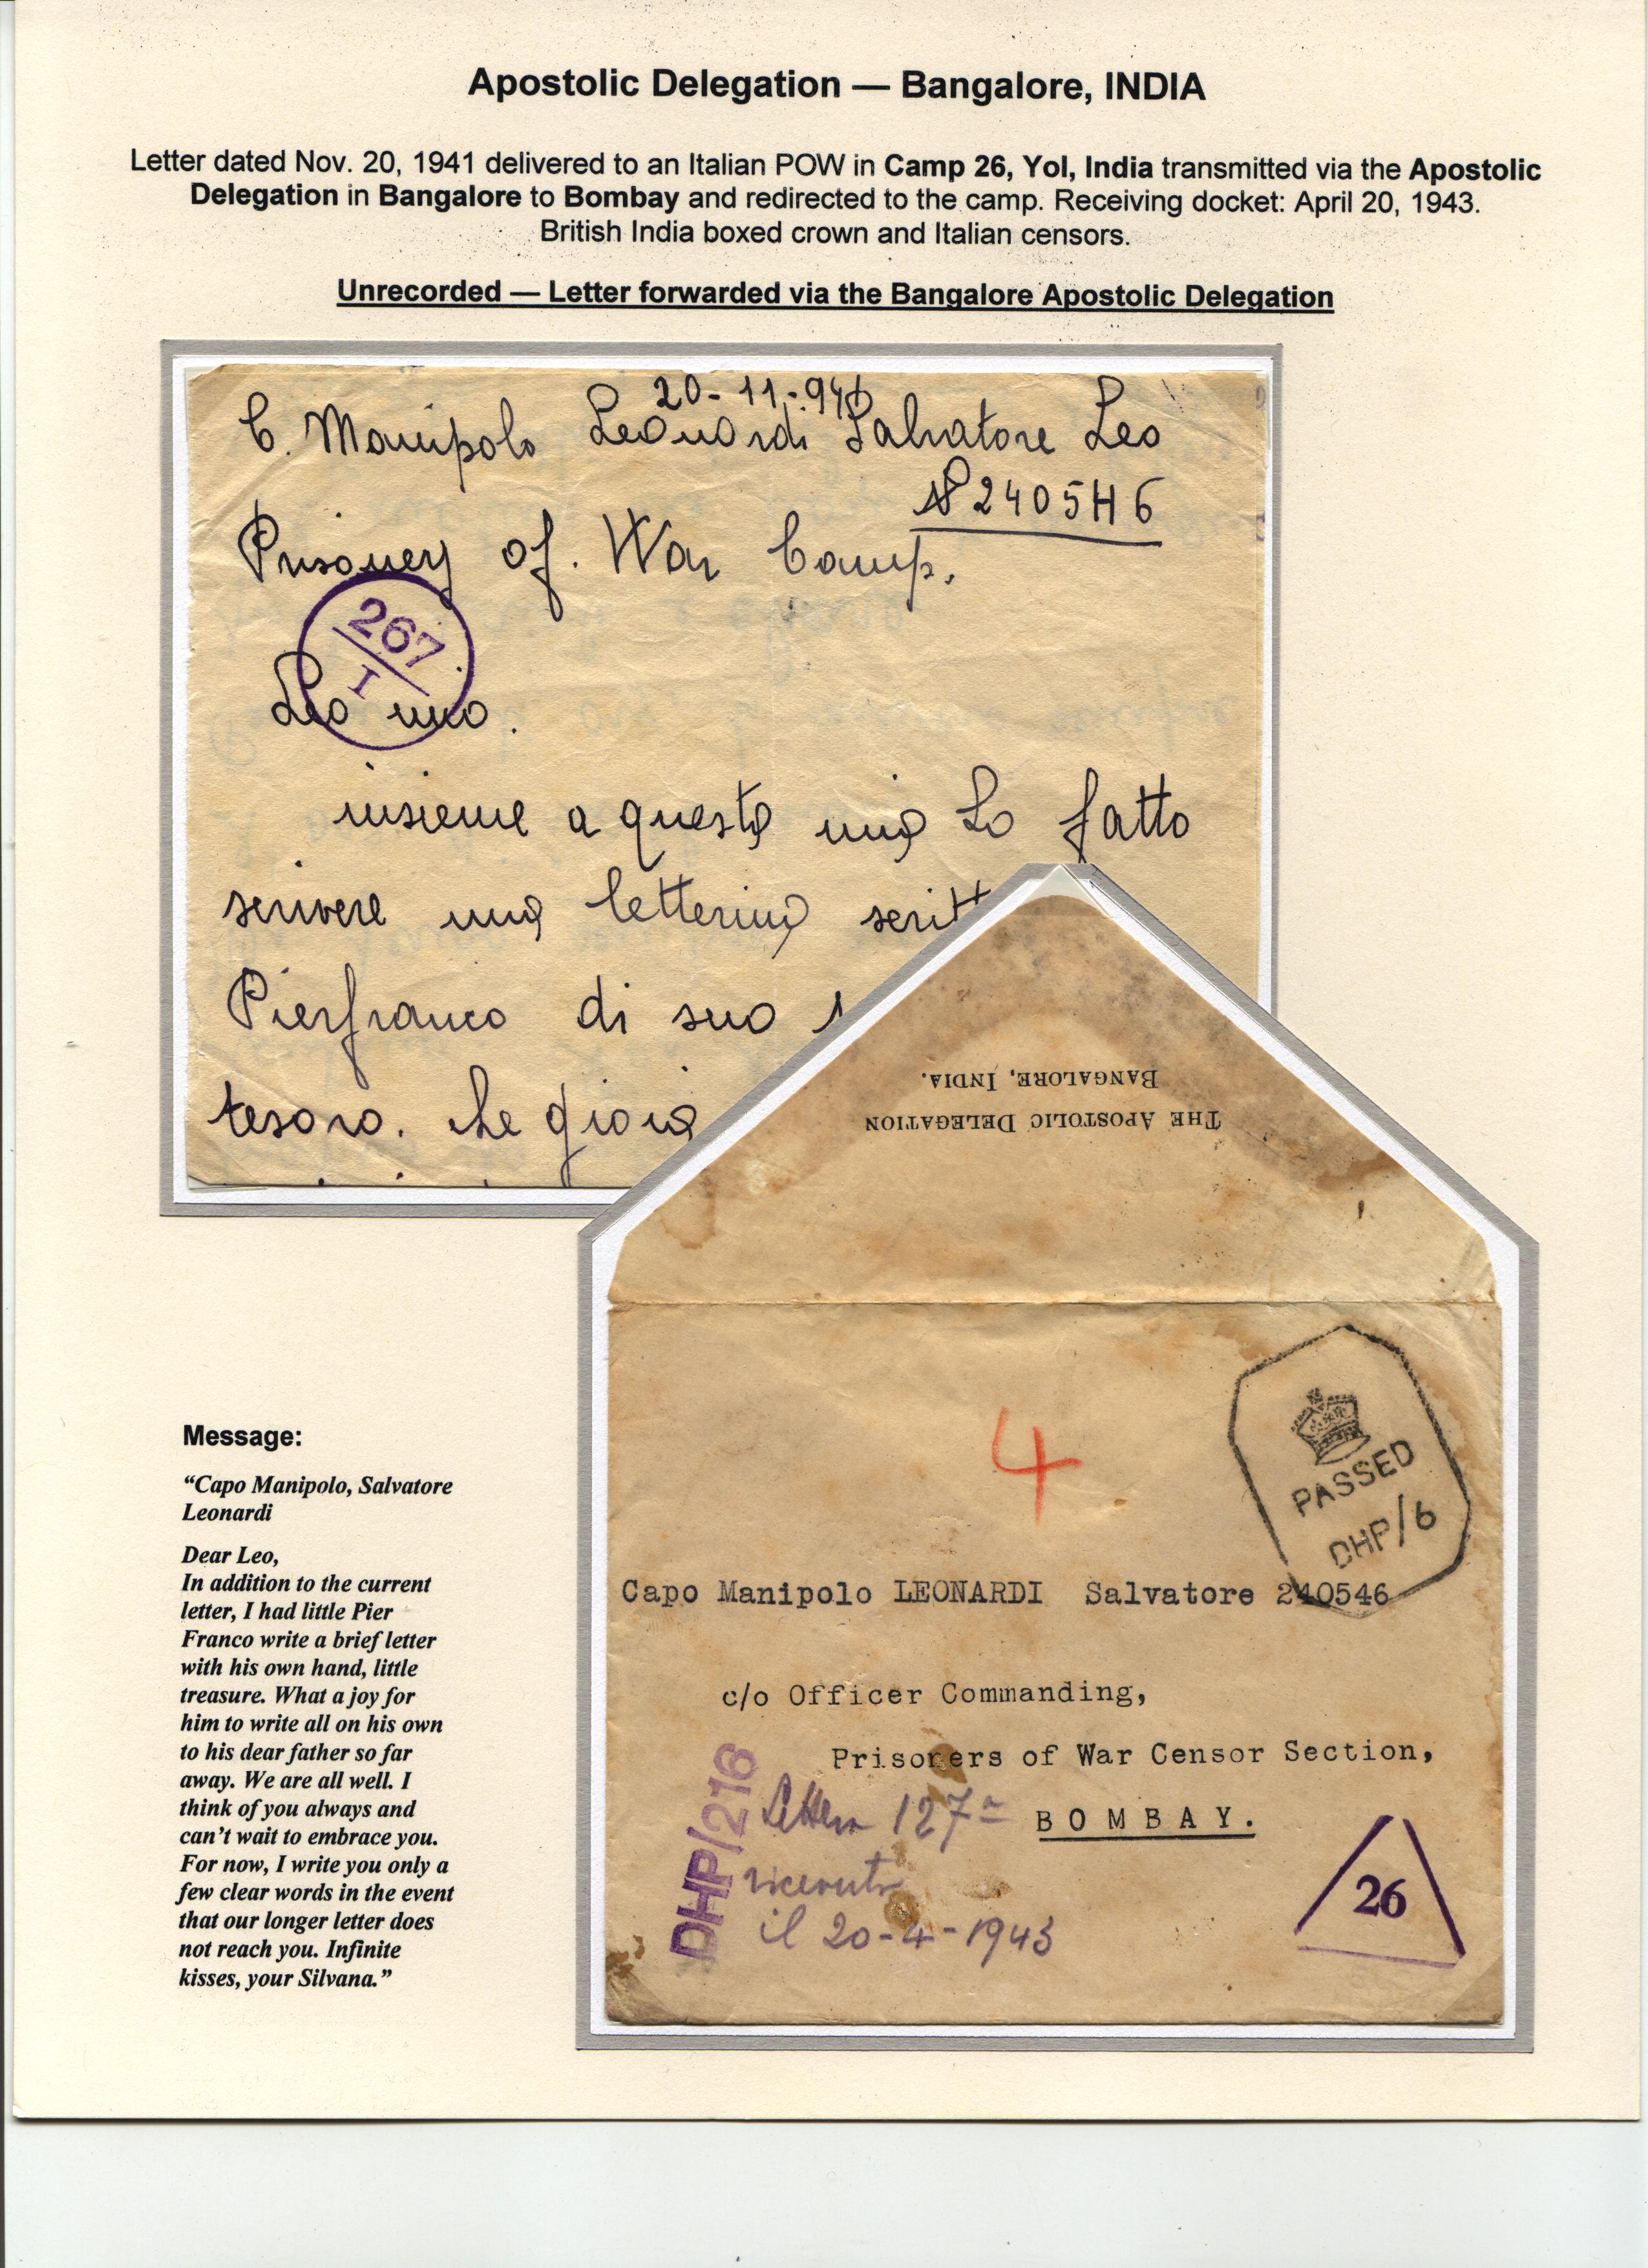 Apostolic Delegation — Bangalore, INDIA
Letter dated Nov. 20, 1941 delivered to an Italian POW in Camp 26, Yol, India transmitted via the Apostolic
Delegation in Bangalore to Bombay and redirected to the camp. Receiving docket: April 20, 1943.
British India boxed crown and Italian censors.
Unrecorded — Letter forwarded via the Bangalore Apostolic Delegation
20-11-941
C. Manipolo Leonardi Salvatore Leo
2405H6
Prisoney of. War Camp.
267
I
Leo mio.
insieme a questa mia ho fatto
scrivere una letterina scritt
Pierfranco di suo
tesoro. Che gioia
THE APOSTOLIC DELEGATION
BANGALORE, INDIA.
4
PASSED
DHP/6
Capo Manipolo LEONARDI Salvatore 240546
c/o Officer Commanding,
Prisoners of War Censor Section,
BOMBAY.
DHP/216
Lettera 127a
ricevuta
il 20-4-1943
26
Message:
“Capo Manipolo, Salvatore
Leonardi
Dear Leo,
In addition to the current
letter, I had little Pier
Franco write a brief letter
with his own hand, little
treasure. What a joy for
him to write all on his own
to his dear father so far
away. We are all well. I
think of you always and
can’t wait to embrace you.
For now, I write you only a
few clear words in the event
that our longer letter does
not reach you. Infinite
kisses, your Silvana.”